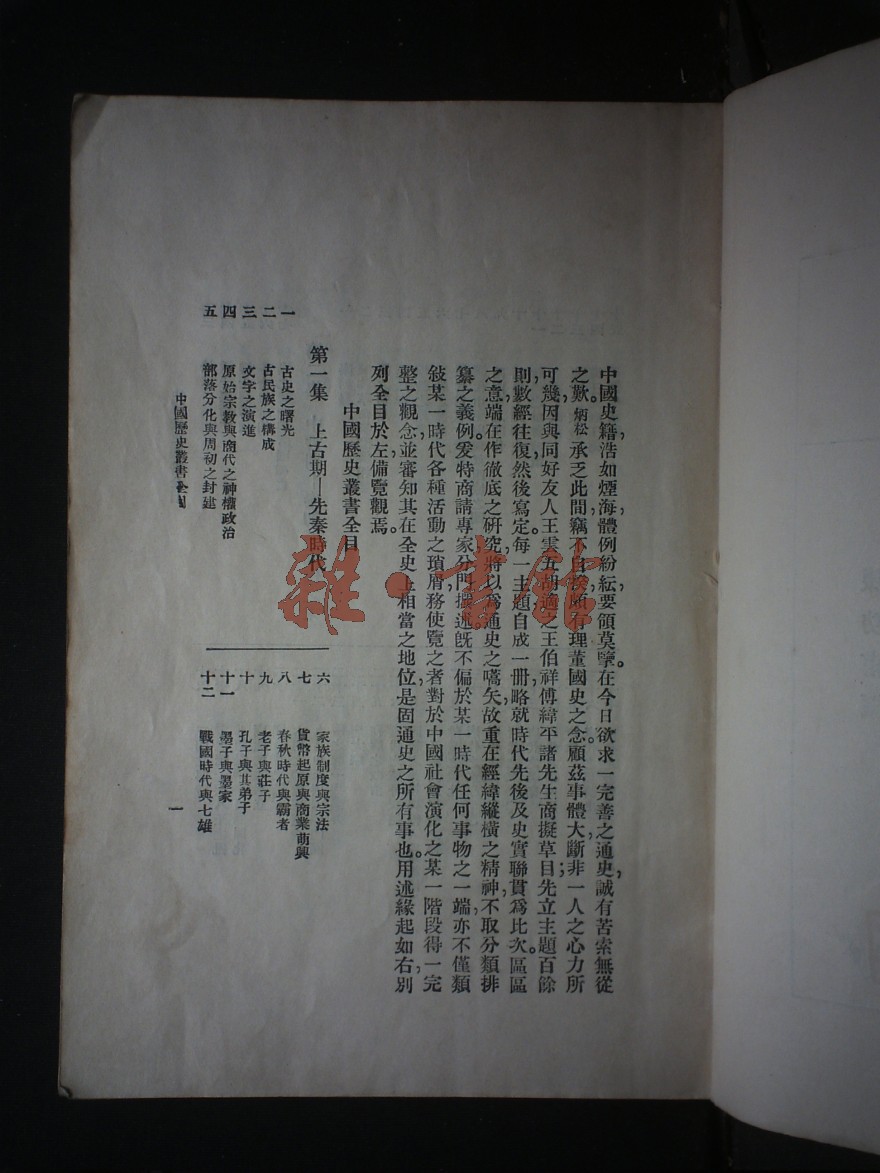 中國史籍，浩如煙海，體例紛紜，要領莫擥。在今日欲求一完善之通史，誠有苦索無從
之歎。炳松承乏此間，竊不自揆，頗有理董國史之念。顧茲事體大，斷非一人之心力所
可幾，因與同好友人王雲五胡適之王伯祥傅緯平諸先生商擬草目，先立主題百餘
則，數經往復，然後寫定。每一主題自成一册，略就時代先後及史實聯貫爲比次。區區
之意，端在作徹底之研究，將以爲通史之嚆矢，故重在經緯縱橫之精神，不取分類排
纂之義例。爰特商請專家，分門撰述，旣不偏於某一時代任何事物之一端，亦不僅類
敍某一時代各種活動之瑣屑，務使覽之者對於中國社會演化之某一階段得一完
整之觀念，並審知其在全史上相當之地位，是固通史之所有事也。用述緣起如右，別
列全目於左，備覽觀焉。
中國歷史叢書全目
第一集　上古期—先秦時代
一　古史之曙光
二　古民族之構成
三　文字之演進
四　原始宗教與商代之神權政治
五　部落分化與周初之封建
六　家族制度與宗法
七　貨幣起原與商業萌興
八　春秋時代與霸者
九　老子與莊子
十　孔子與其弟子
十一　墨子與墨家
十二　戰國時代與七雄
中國歷史叢書全目
一
雜·書館